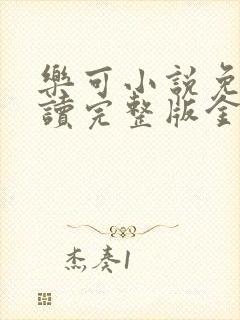 樂可小說免
讀完整版全
杰奏1